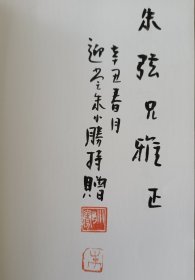 朱弦兄雅正
辛丑春月
迎堂朱小勝持贈